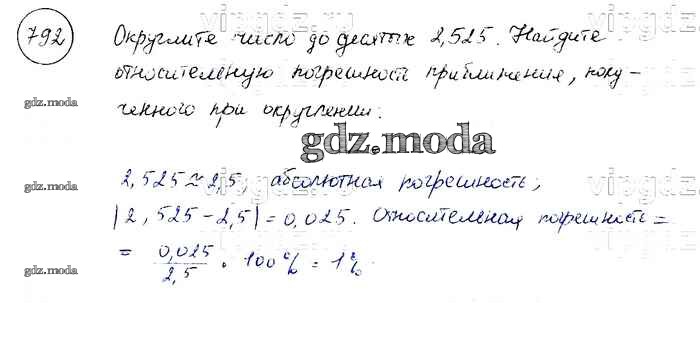 792
Округлите число до десятых 2,525. Найдите
относительную погрешность приближения, полу-
ченного при округлении.
gdz.moda
gdz.moda
2,525≈2,5; абсолютная погрешность;
|2,525-2,5|=0,025. Относительная погрешность =
= 0,025/2,5 · 100% = 1%
gdz.moda
vipgdz
vipgdz
vipgdz